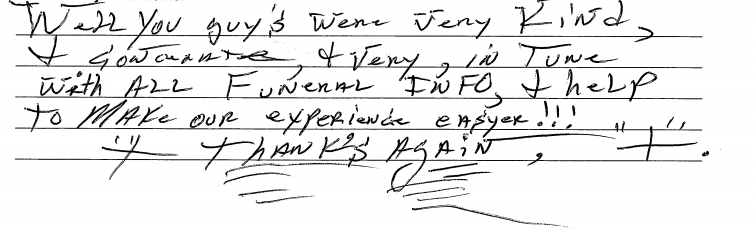 Well you guy's were very kind,
& , & very, in Tune
with ALL FUNERAL INFO, & help
To MAKE our experience easyer!!!
"+ THANK'S AGAIN, "+".